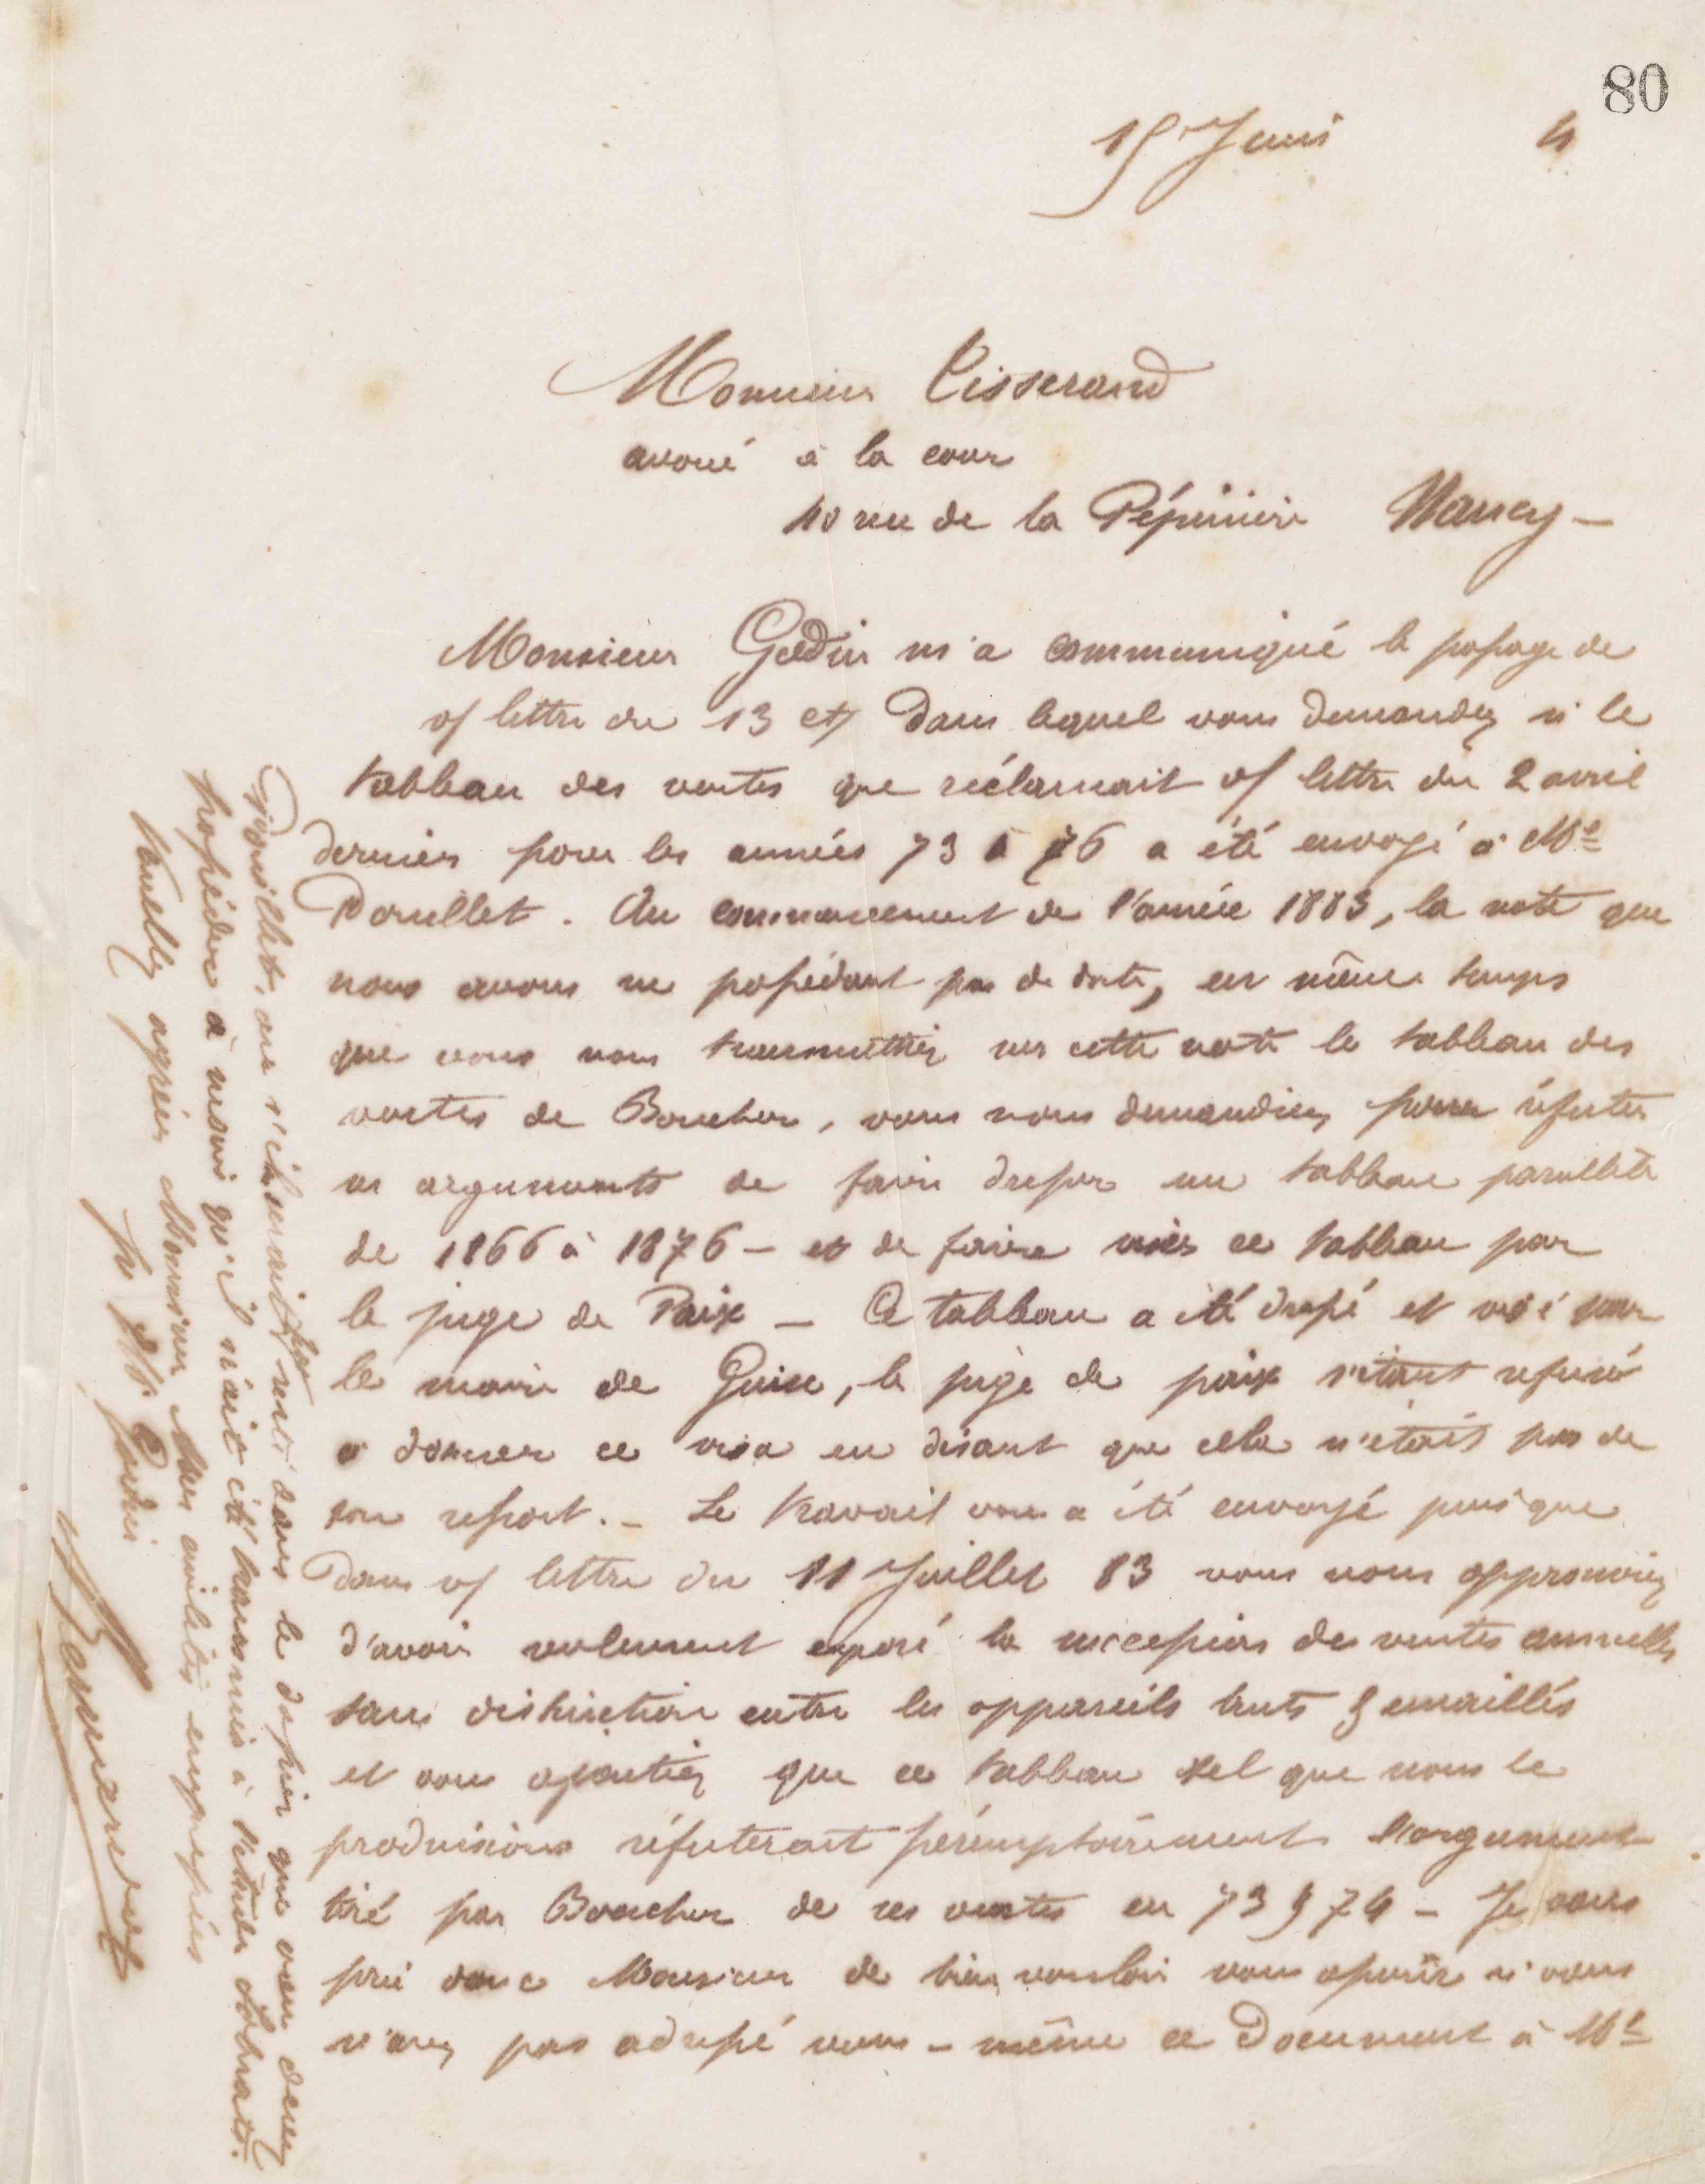 80
15 Juin 4
Monsieur Tisserand
avoué à la cour
40 rue de la Pépinière Nancy -
Monsieur Godin m'a communiqué le passage de
v/ lettre du 13 ct/ dans lequel vous demandez si le
tableau des ventes que réclamait v/ lettre du 2 avril
dernier pour les années 73 à 76 a été envoyé à Me
Douillet. Au commencement de l'année 1883, la note que
nous avons ne possédant pas de date, en même temps
que vous nous transmettiez une cette note le tableau des
ventes de Boucher, vous nous demandiez pour réfuter
ses arguments de faire dresser un tableau parallèle
de 1866 à 1876 - et de faire viser ce tableau par
le juge de Paix - Ce tableau a été dressé et visé par
le maire de Guise, le juge de paix s'étant refusé
à donner ce visa en disant que cela n'était pas de
son ressort. - Le travail vous a été envoyé puisque
dans v/ lettre du 11 Juillet 83 vous nous approuviez
d'avoir seulement exposé la des ventes annuelles
sans distinction entre les appareils bruts & émaillés
et vous ajoutiez que ce tableau tel que nous le
produisions réfuterait péremptoirement l'argument
tiré par Boucher de ses ventes en 73 & 74 - Je vous
prie donc Monsieur de bien vouloir vous assurer si vous
n'avez pas adressé vous-même ce document à Me
Douillet, ou s'il ne serait pas resté dans le dossier que vous devez
posséder à moins qu'il n'ait été transmis à l'étude
Veuillez agréer Monsieur mes civilités empressées
pr Godin